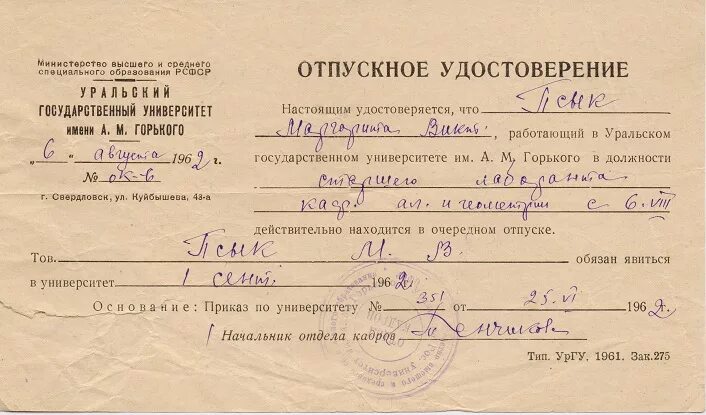 Министерство высшего и среднего
специального образования РСФСР
УРАЛЬСКИЙ
ГОСУДАРСТВЕННЫЙ УНИВЕРСИТЕТ
имени А. М. ГОРЬКОГО
„6" августа 1962 г.
№ ок-в
г. Свердловск, ул. Куйбышева, 48-а
ОТПУСКНОЕ УДОСТОВЕРЕНИЕ
Настоящим удостоверяется, что Псык
Маргарита Викт., работающий в Уральском
государственном университете им. А. М. Горького в должности
старшего лаборанта
кафр. ал. и геометрии с 6.VIII
действительно находится в очередном отпуске.
Тов. Псык М. В. обязан явиться
в университет 1 сент. 1962 г.
Основание: Приказ по университету № 351 от 25.VI 1962 г.
Начальник отдела кадров
Тип. УрГУ, 1961. Зак.275